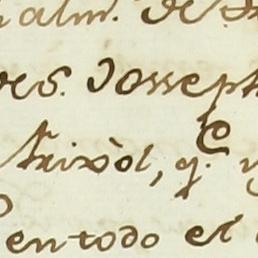 alm. de
res. Josseph
Trixòl, q.e
en todo el